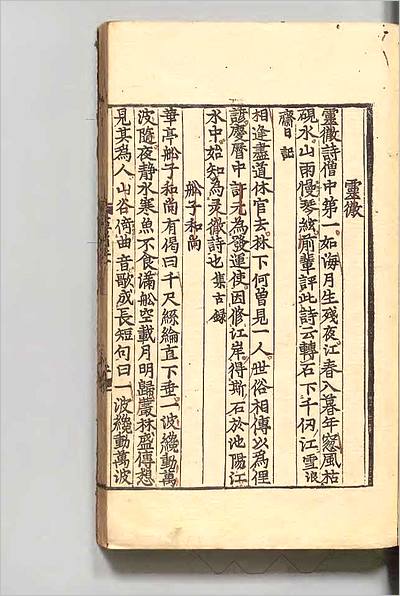 靈徹
靈徹詩僧中第一如海月生殘夜江春入暮年窓風枯
硯水山雨慢琴絃前輩評此詩云轉石下千仞江雪浪
齋日記
相逢盡道休官去林下何曾見一人世俗相傳以為俚
諺慶曆中許元為發運使因修江岸得斯石於池陽江
水中始知為灵徹詩也集古録
舩子和尚
華亭舩子和尚有偈曰千尺絲綸直下垂一波纔動萬
波隨夜静水寒魚不食滿舩空載月明歸叢林盛傳想
見其為人山谷倚曲音歌成長短句曰一波纔動萬波